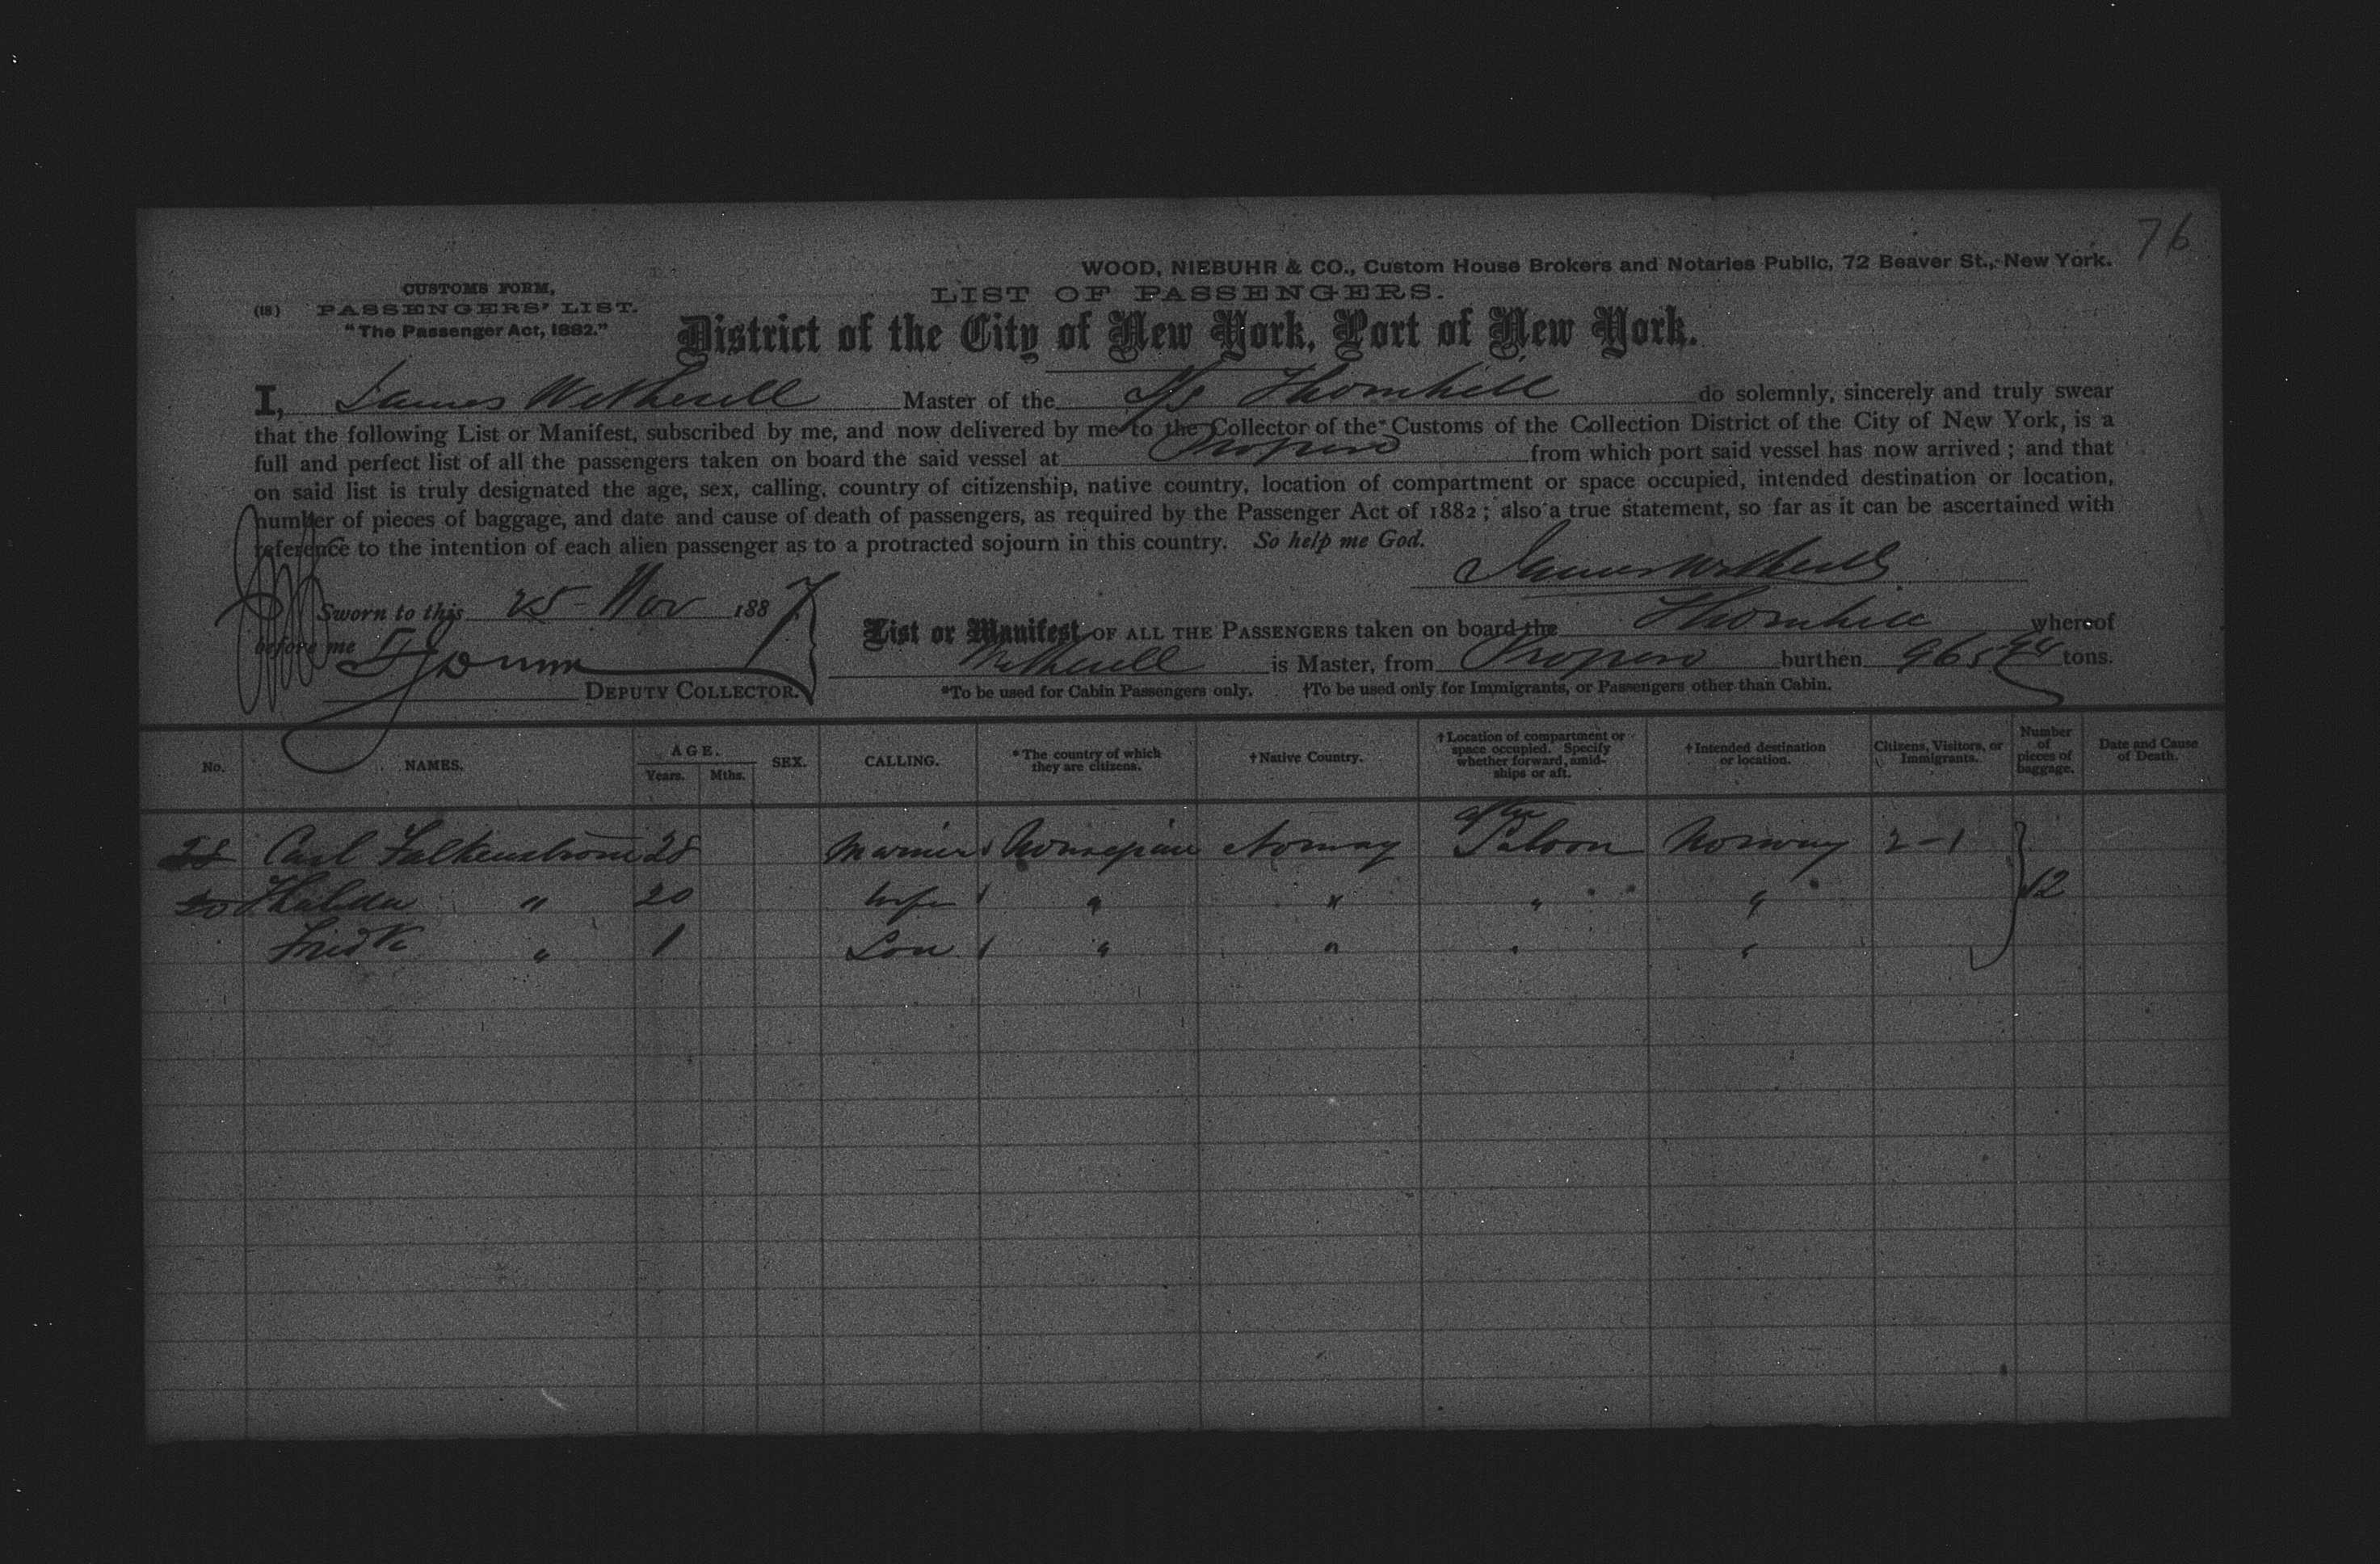 76
WOOD, NIEBUHR & CO., Custom House Brokers and Notaries Public, 72 Beaver St., New York.
CUSTOMS FORM,
(18) PASSENGERS' LIST.
"The Passenger Act, 1882."
LIST OF PASSENGERS.
District of the City of New York, Port of New York.
I, James Wetherell Master of the S/s Thornhill do solemnly, sincerely and truly swear
that the following List or Manifest, subscribed by me, and now delivered by me to the Collector of the Customs of the Collection District of the City of New York, is a
full and perfect list of all the passengers taken on board the said vessel at from which port said vessel has now arrived ; and that
on said list is truly designated the age, sex, calling, country of citizenship, native country, location of compartment or space occupied, intended destination or location,
number of pieces of baggage, and date and cause of death of passengers, as required by the Passenger Act of 1882 ; also a true statement, so far as it can be ascertained with
reference to the intention of each alien passenger as to a protracted sojourn in this country. So help me God.
James Wetherell
Sworn to this 25 - Nov 1887
before me
DEPUTY COLLECTOR.
List or Manifest OF ALL THE PASSENGERS taken on board the Thornhill whereof
Wetherell is Master, from burthen 965 tons.
*To be used for Cabin Passengers only. †To be used only for Immigrants, or Passengers other than Cabin.
No. NAMES. AGE. Years. Mths. SEX. CALLING. *The country of which they are citizens. †Native Country. †Location of compartment or space occupied. Specify whether forward, amidships or aft. †Intended destination or location. Citizens, Visitors, or Immigrants. Number of pieces of baggage. Date and Cause of Death.
28 Carl Falkenstrom 28 Mariner Norway after Saloon Norway 2-1
20 Hilda " 20 Wife " " " " 12
Fredk " 1 Son " " " "